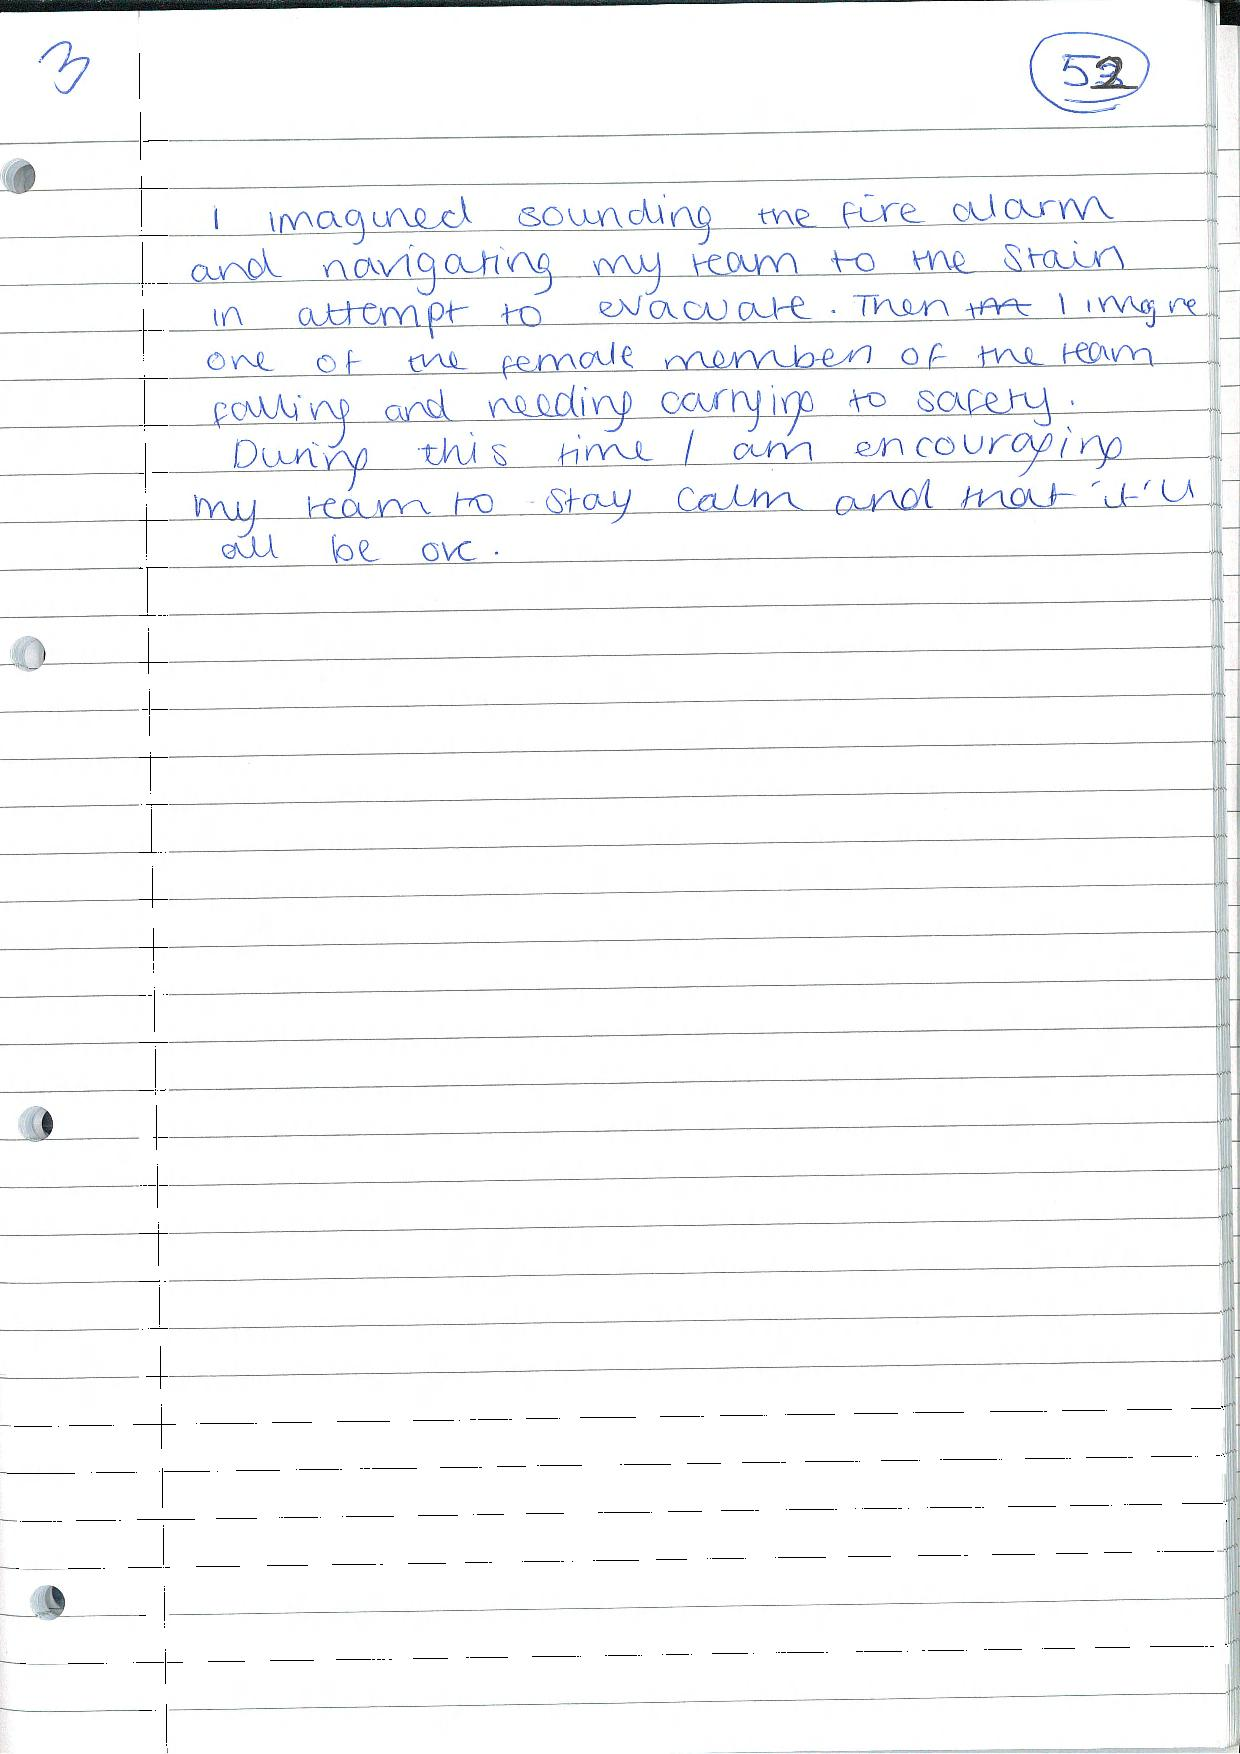 3
52
I imagined sounding the fire alarm
and navigating my team to the stairs
in attempt to evacuate. Then I imagine
one of the female members of the team
falling and needing carrying to safety.
During this time I am encouraging
my team to stay calm and that it'll
all be ok.